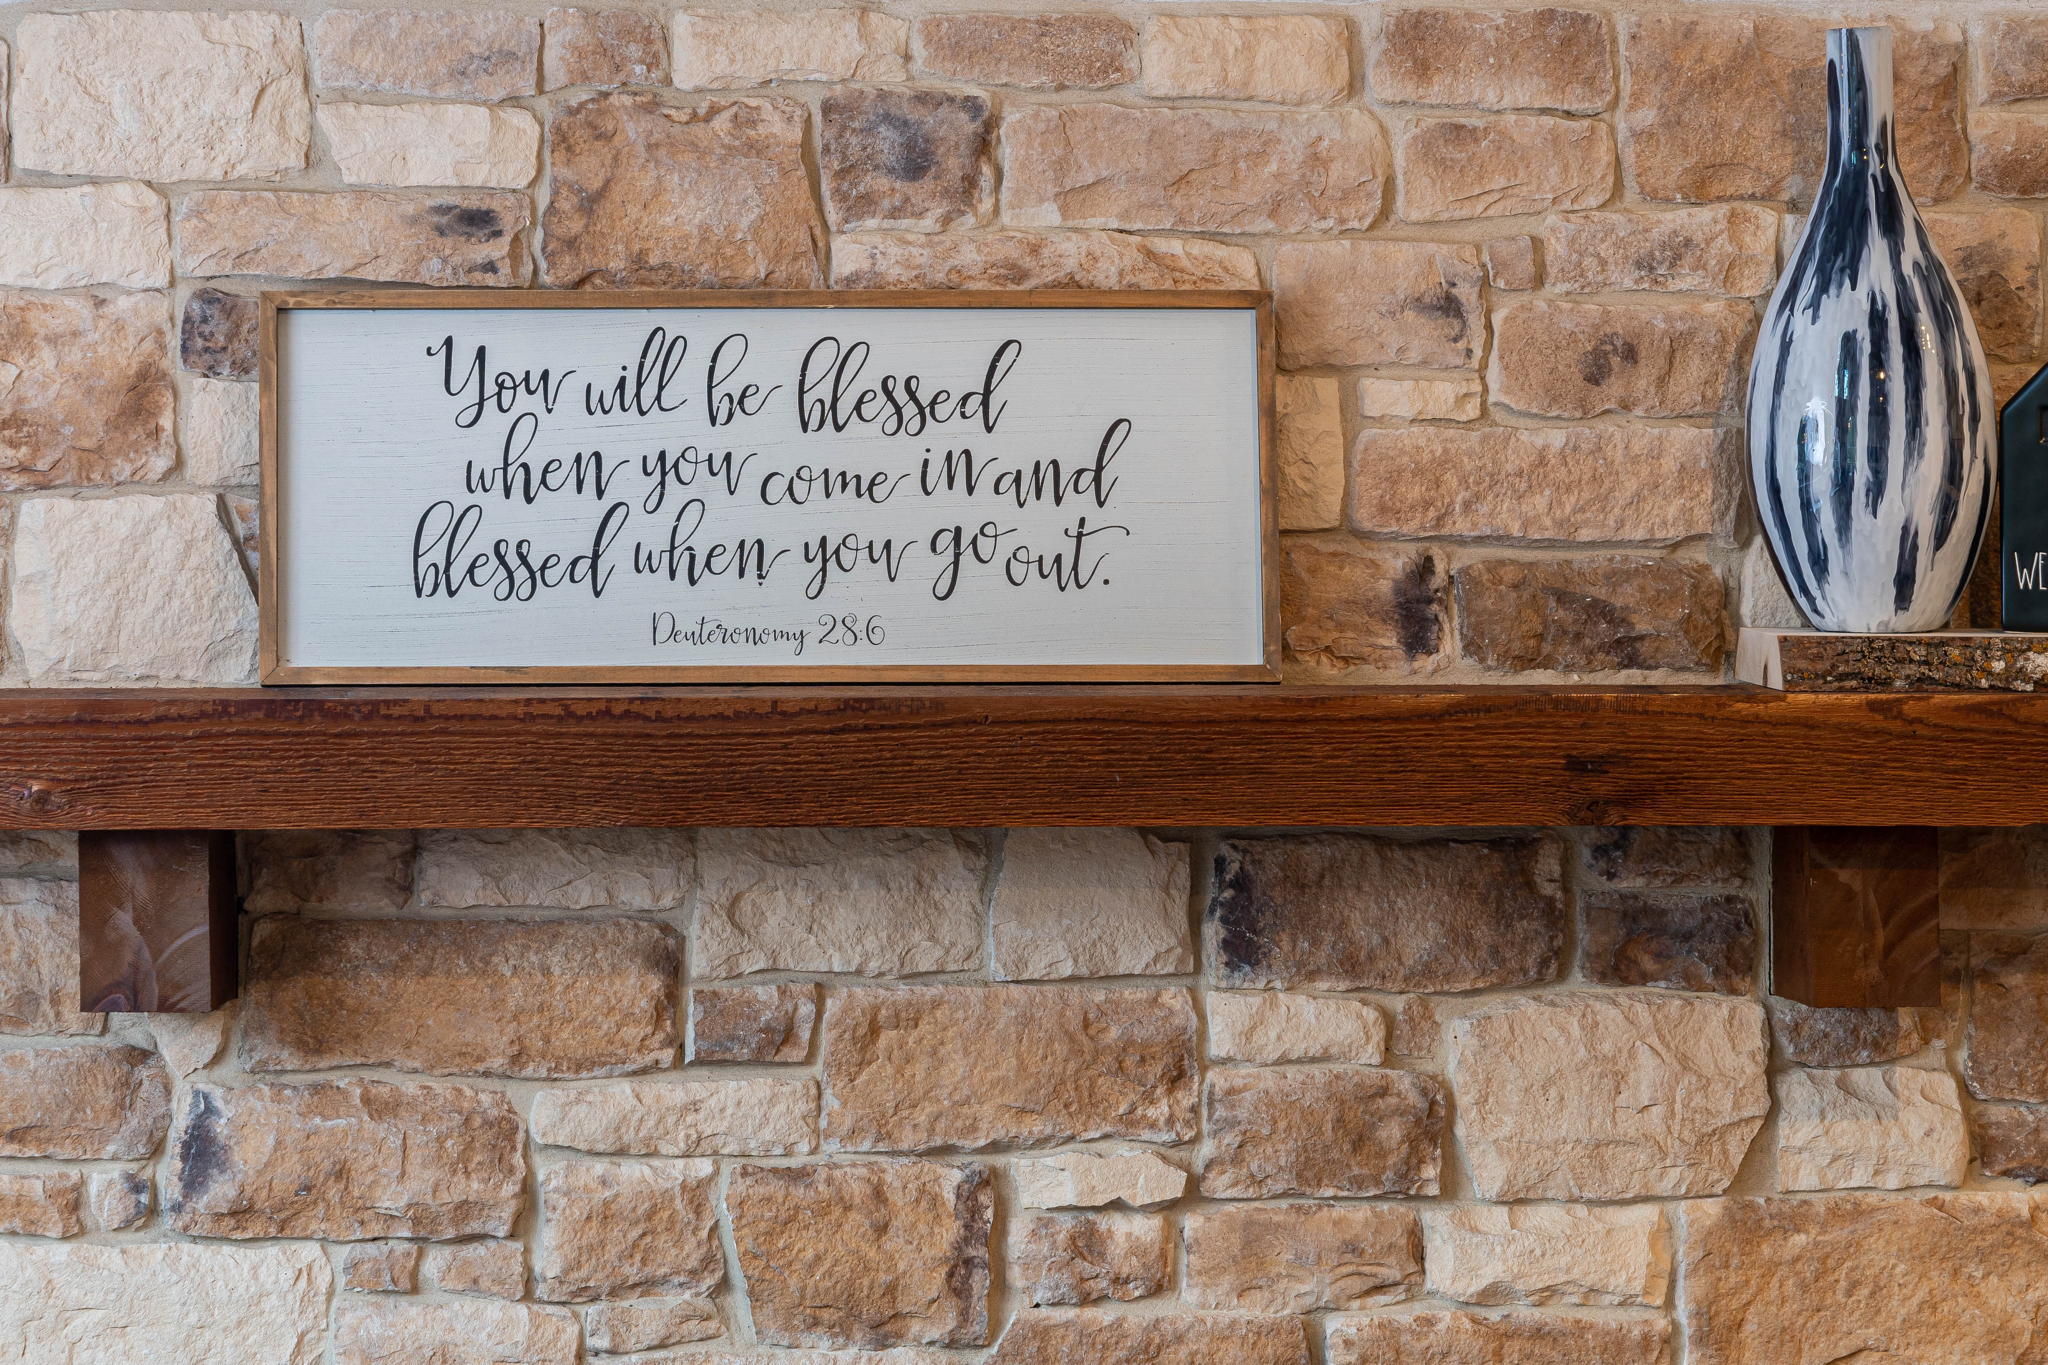 You will be blessed
when you come in and
blessed when you go out.
Deuteronomy 28:6
WE